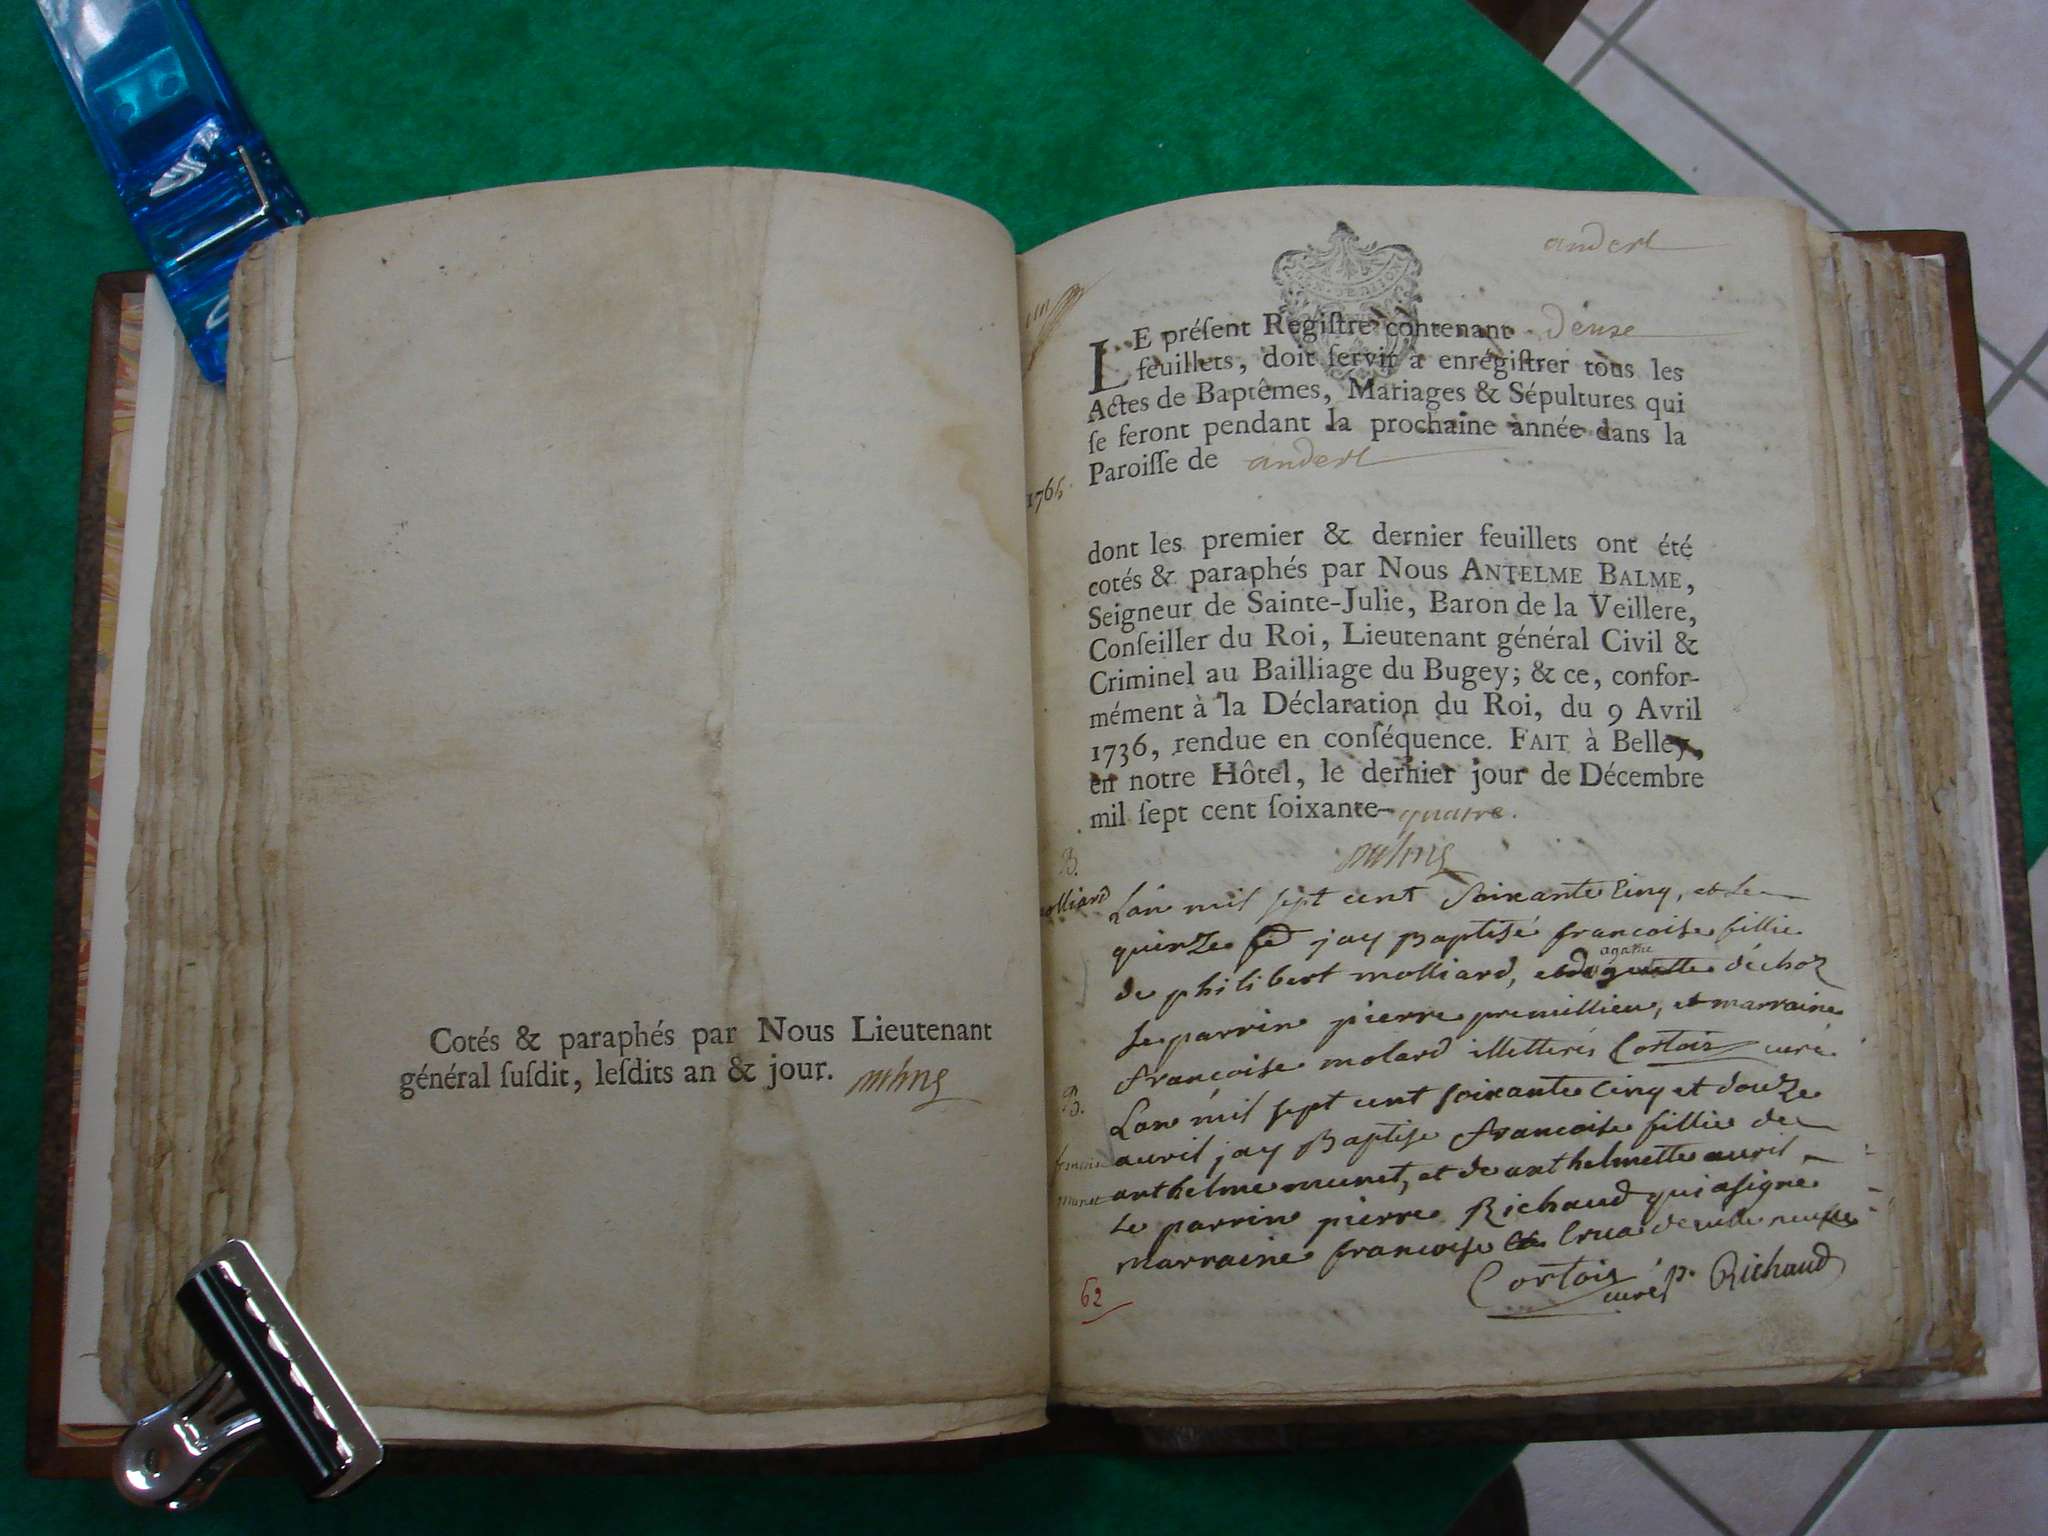 Cotés & paraphés par Nous Lieutenant
général ſuſdit, leſdits an & jour.
andert
LE préſent Regiſtre contenant deuxe
feuillets, doit ſervir à enrégiſtrer tous les
Actes de Baptêmes, Mariages & Sépultures qui
ſe feront pendant la prochaine année dans la
Paroiſſe de andert
1765
dont les premier & dernier feuillets ont été
cotés & paraphés par Nous ANTELME BALME,
Seigneur de Sainte-Julie, Baron de la Veillere,
Conſeiller du Roi, Lieutenant général Civil &
Criminel au Bailliage du Bugey; & ce, confor-
mément à la Déclaration du Roi, du 9 Avril
1736, rendue en conſéquence. FAIT à Belley,
en notre Hôtel, le dernier jour de Décembre
mil ſept cent ſoixante-quatre.
B.
molliard
Lan mil sept cent soixante cinq, et le
quinze fe jay Baptisé francoise fillie
de philibert molliard, et d agathe déchoz
le parrin pierre premillieu, et marraine
françoise molard illetterés Cortois curé
B.
Lan mil sept cent soixante cinq et douze
francoise
avril jay Baptise francoise fillie de
munet
anthelme munet, et de anthelmette avril
le parrin pierre Richaud qui a signe
marraine francoise Crua de
Cortois curé p. Richaud
62